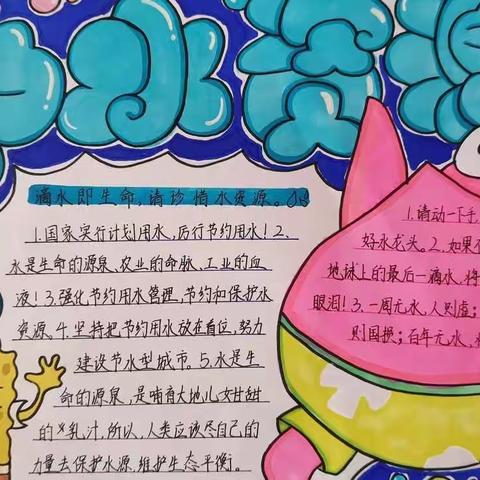 水资源
滴水即生命,请珍惜水资源。
1.国家实行计划用水,厉行节约用水!2.
水是生命的源泉、农业的命脉、工业的血
液!3.强化节约用水管理,节约和保护水
资源。4.坚持把节约用水放在首位,努力
建设节水型城市。5.水是生
命的源泉,是哺育大地儿女甘甜
的乂乳汁.所以,人类应该尽自己的
力量去保护水源,维护生态平衡。
1.请动一下手
好水龙头。2.如果不
地球上的最后一滴水,将
眼泪!3.一周无水,人则虚;
则国损;百年无水,